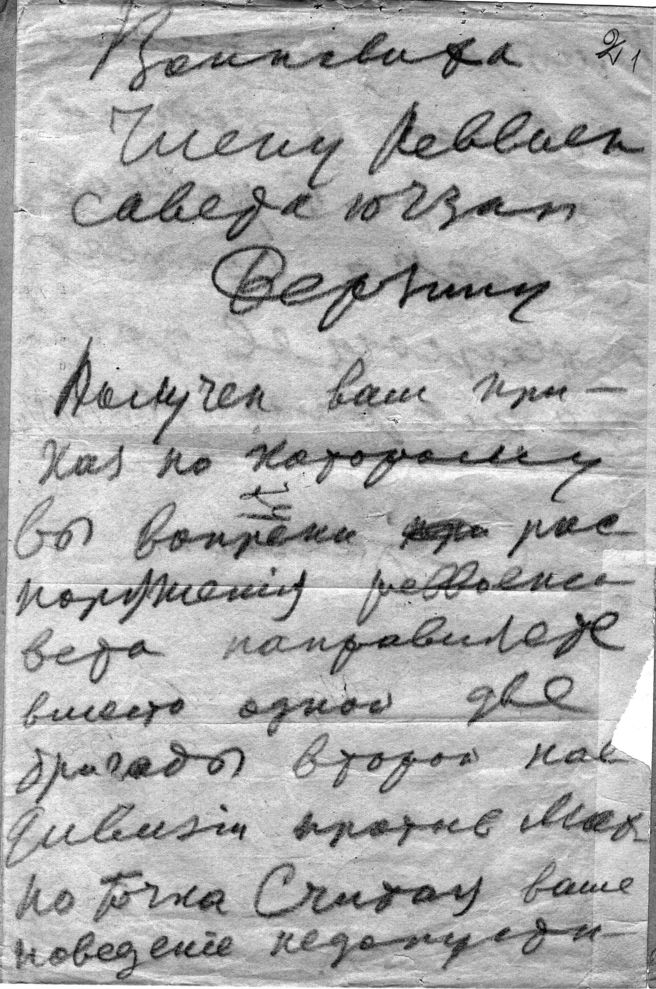 21
Члену Реввоен
совета югзап
Берзину
Получен ваш при-
каз по которому
вы вопреки рас
поряжения реввоенсо
вета направляете
вместо одной две
бригады второй кав
дивизiи против Мах-
но Точка Считая ваше
поведенiе недопусти-